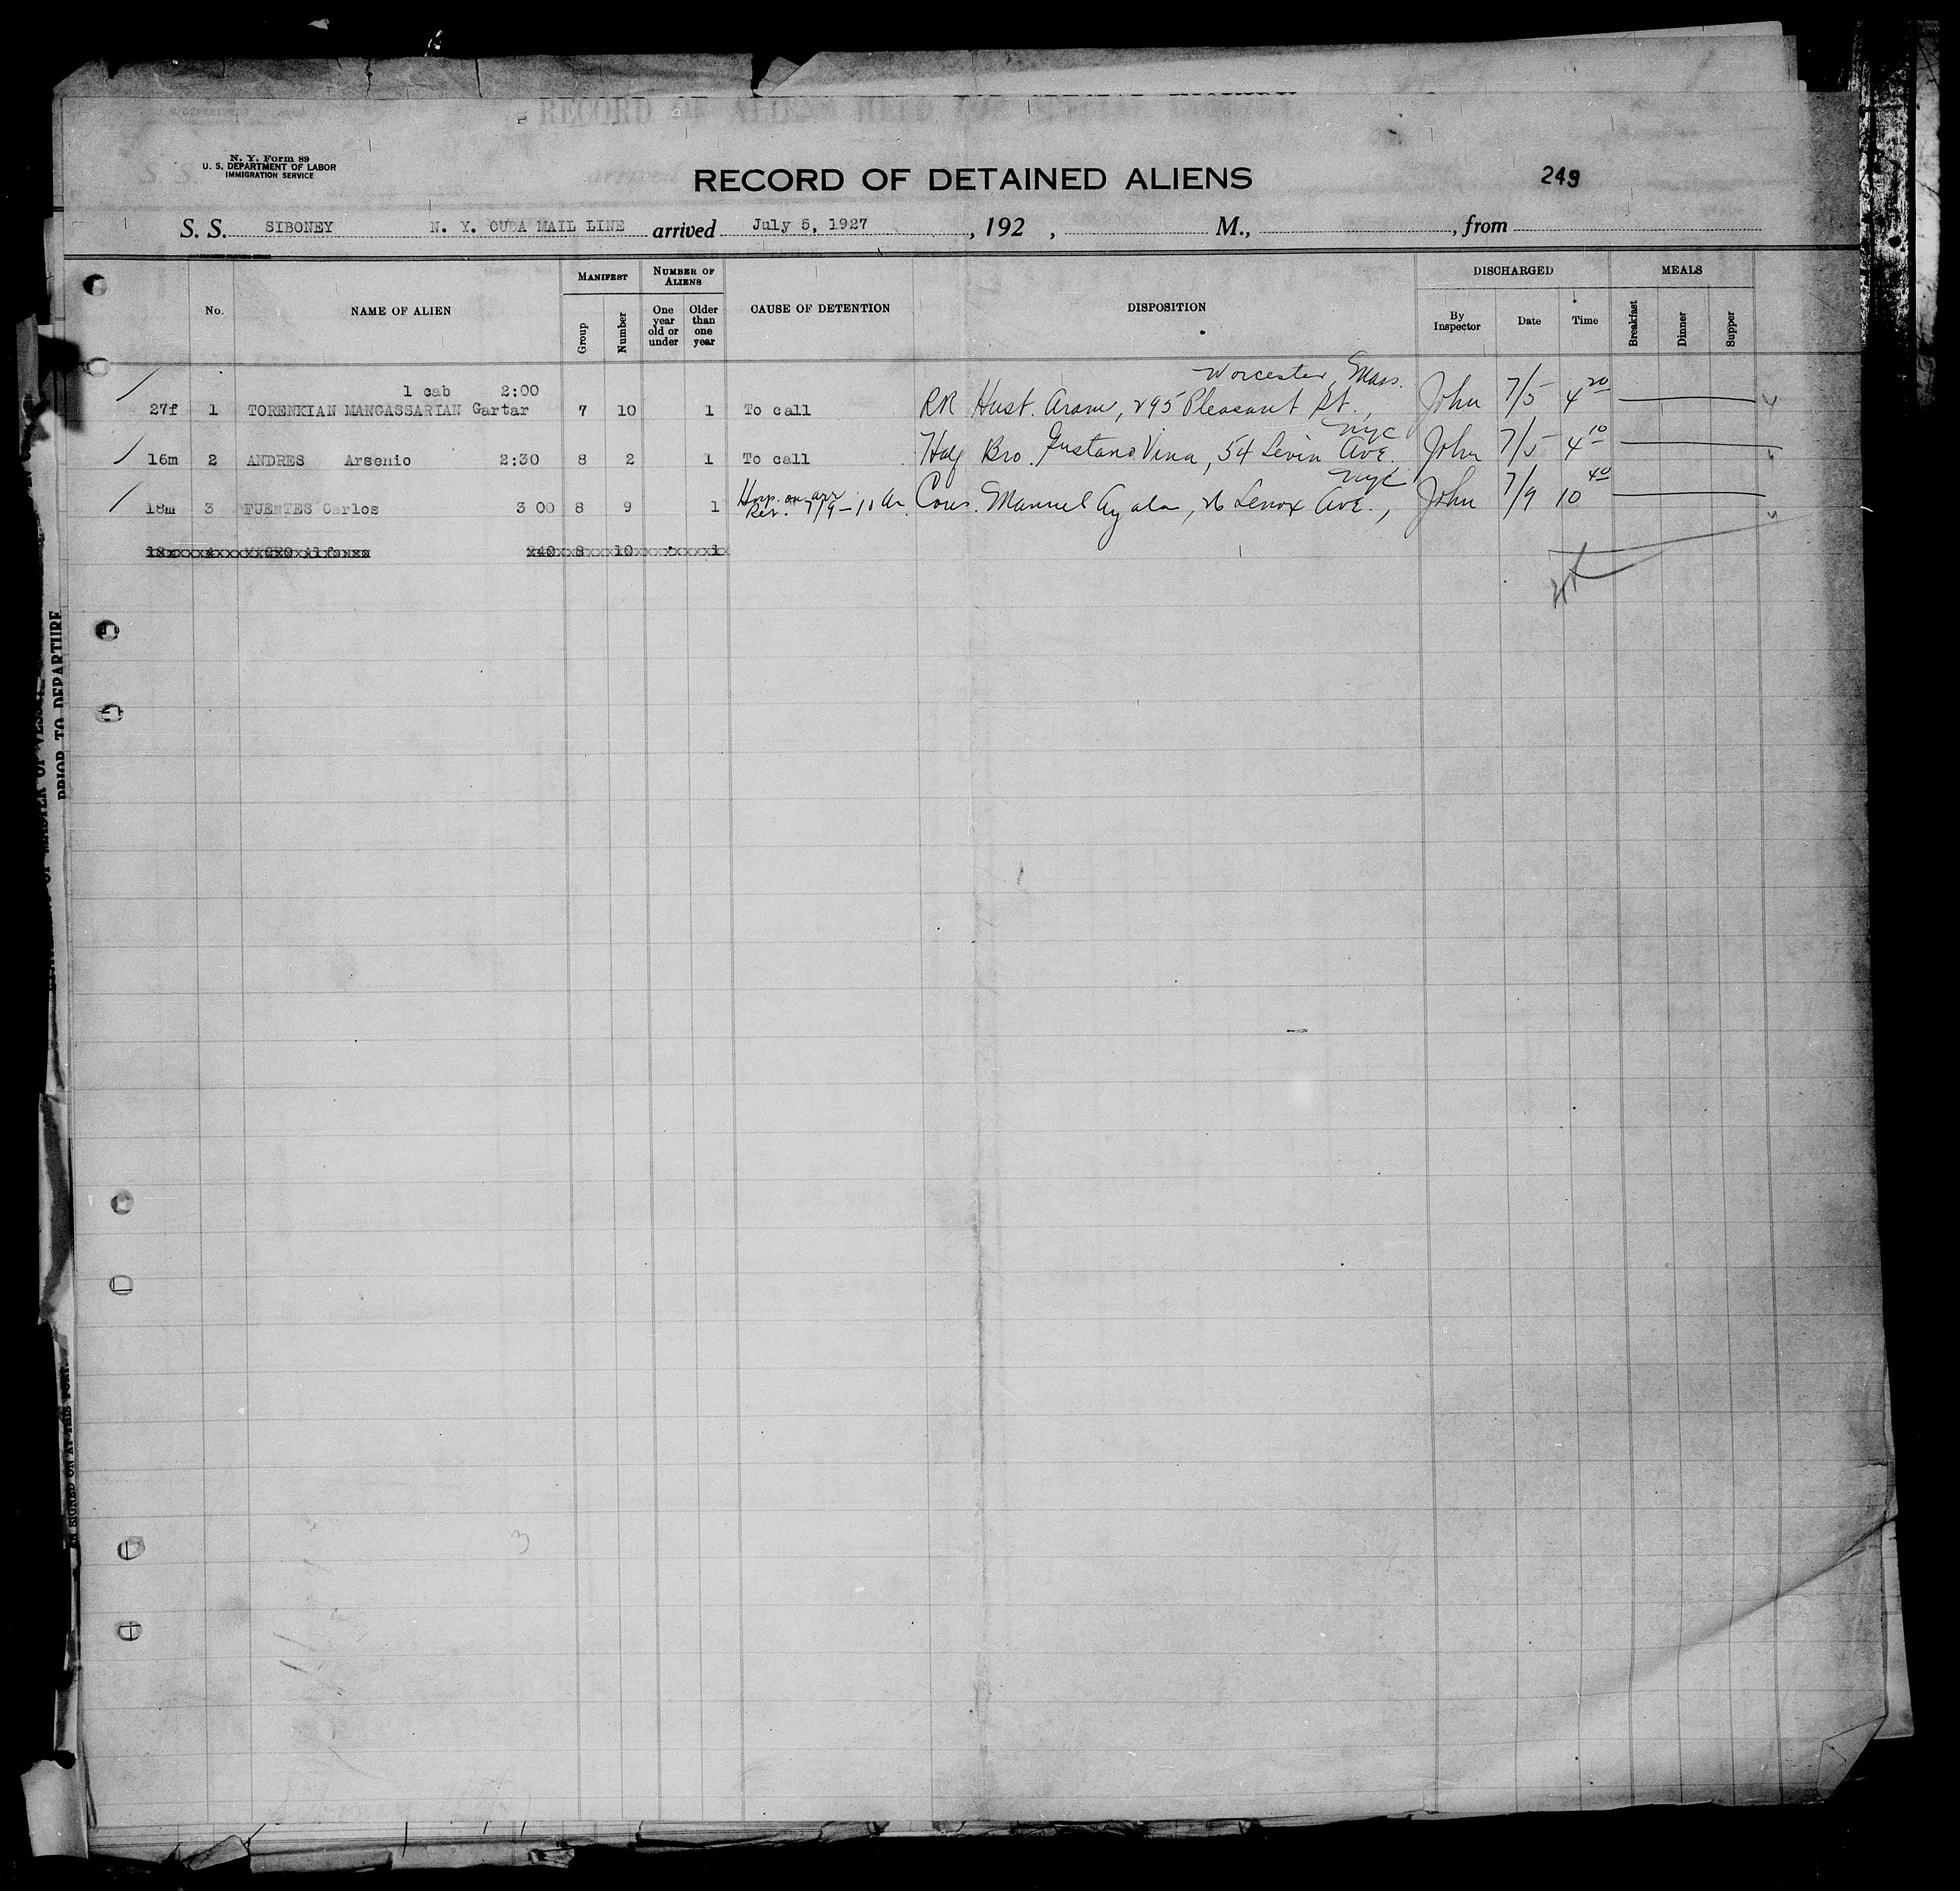 RECORD OF ALIENS HELD FOR SPECIAL INQUIRY
N. Y. Form 89
U. S. DEPARTMENT OF LABOR
IMMIGRATION SERVICE
RECORD OF DETAINED ALIENS
249
S. S. SIBONEY N. Y. CUBA MAIL LINE arrived July 5, 1927, 192 , M., , from
No. NAME OF ALIEN MANIFEST Group Number NUMBER OF ALIENS One year old or under Older than one year CAUSE OF DETENTION DISPOSITION DISCHARGED By Inspector Date Time MEALS Breakfast Dinner Supper
1 cab 2:00 Worcester, Mass.
27f 1 TORENKIAN MANGASSARIAN Gartar 7 10 1 To call RR Husb. Aram, 295 Pleasant St., John 7/5 4 20
NYC
16m 2 ANDRES Arsenio 2:30 8 2 1 To call Bro. Gustavo Vina, 54 Ave. John 7/5 4 10
NYC
18m 3 FUENTES Carlos 3 00 8 9 1 Hosp. on arr Cous. Manuel Ayala, 26 Lenox Ave., John 7/9 10 40
7/9 – 10
4 Alfonso 240 8 10 1
PRIOR TO DEPARTURE
SIGNED ON AT THIS PORT
3